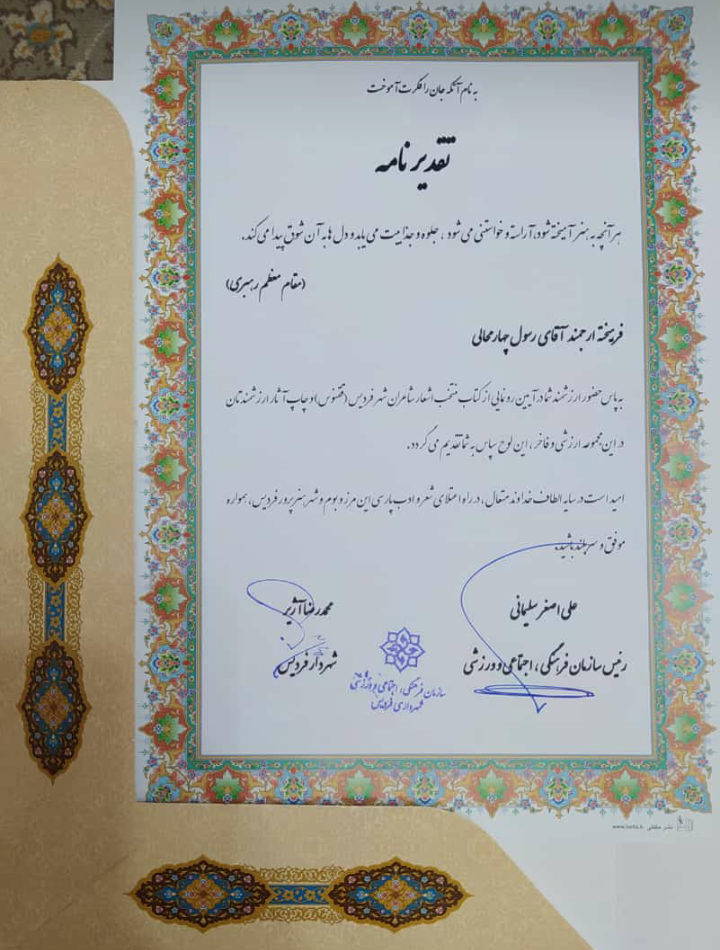 به نام آنکه جان را فکرت آموخت
تقدیر نامه
هر آنچه به هنر آمیخته شود، آراسته و خواستنی می شود، جلوه و جذابیت می یابد و دل ها به آن شوق پیدا می کند.
(مقام معظم رهبری)
فرهیخته ارجمند آقای رسول چهارمحالی
به پاس حضور ارزشمند شما در آیین رونمایی از کتاب منتخب اشعار شاعران شهر فردیس (ققنوس) و چاپ آثار ارزشمندتان
در این مجموعه ارزشی و فاخر، این لوح سپاس به شما تقدیم می گردد.
امید است در سایه الطاف خداوند متعال، در راه اعتلای شعر و ادب پارسی این مرز و بوم و شهر هنرپرور فردیس، همواره
موفق و سربلند باشید.
علی اصغر سلیمانی
رئیس سازمان فرهنگی، اجتماعی و ورزشی
محمدرضا آژیر
شهردار فردیس
سازمان فرهنگی، اجتماعی و ورزشی
شهرداری فردیس